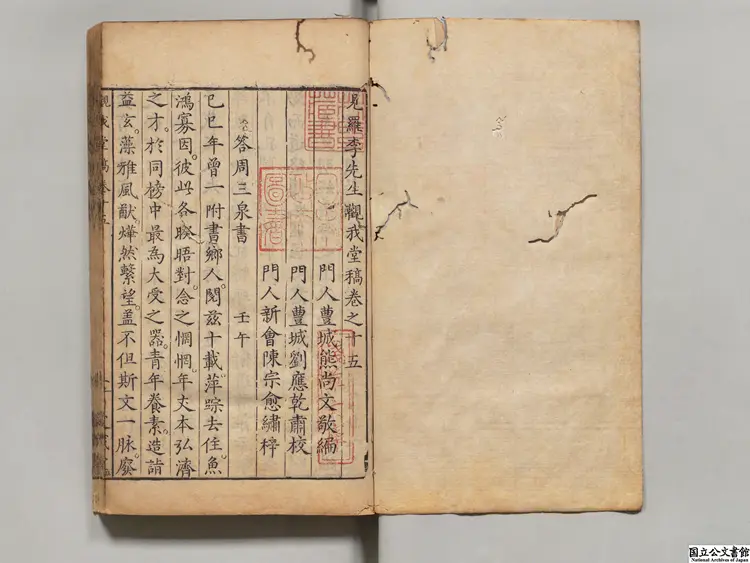 見羅李先生觀我堂稿卷之十五
門人豐城熊尚文敬編
門人豐城劉應乾肅校
門人新會陳宗愈繡梓
答周三泉書 壬午
己巳年曾一附書鄉人閱茲十載萍踪去住魚
鴻寡因彼此各睽晤對念之惘惘年丈本弘濟
之才於同榜中最為大受之器青年養素造詣
益玄藻雅風猷燁然繫望盖不但斯文一脉
觀我堂稿卷十五
国立公文書館
National Archives of Japan